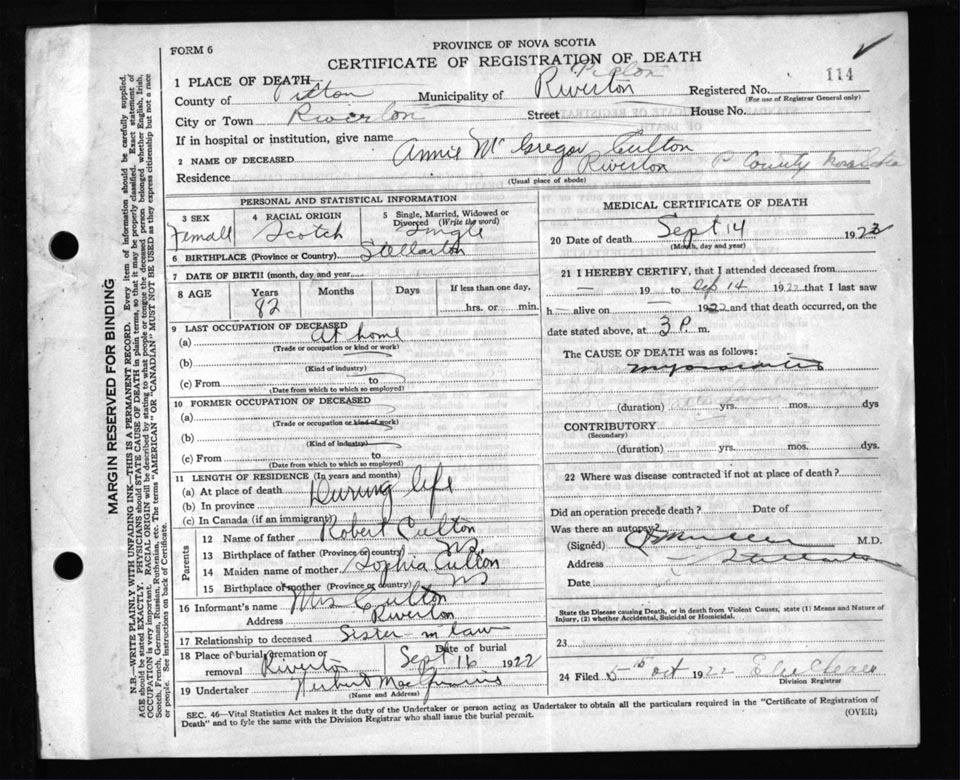 PROVINCE OF NOVA SCOTIA
FORM 6
CERTIFICATE OF REGISTRATION OF DEATH
114
1 PLACE OF DEATH
County of Pictou Municipality of Riverton Pictou Registered No.
(For use of Registrar General only)
City or Town Riverton Street House No.
If in hospital or institution, give name
2 NAME OF DECEASED Annie Mc Gregor Culton
Residence Riverton P County Nova Scotia
(Usual place of abode)
PERSONAL AND STATISTICAL INFORMATION
3 SEX Female
4 RACIAL ORIGIN Scotch
5 Single, Married, Widowed or Divorced (Write the word) Single
6 BIRTHPLACE (Province or Country) Stellarton
7 DATE OF BIRTH (month, day and year)
8 AGE Years 82 Months Days If less than one day, hrs. or min.
9 LAST OCCUPATION OF DECEASED
(a) At home
(Trade or occupation or kind or work)
(b)
(Kind of industry)
(c) From to
(Date from which to which so employed)
10 FORMER OCCUPATION OF DECEASED
(a)
(Trade or occupation or kind of work)
(b)
(Kind of industry)
(c) From to
(Date from which to which so employed)
11 LENGTH OF RESIDENCE (In years and months)
(a) At place of death During life
(b) In province
(c) In Canada (if an immigrant)
Parents
12 Name of father Robert Culton
13 Birthplace of father (Province or country)
14 Maiden name of mother Sophia Culton
15 Birthplace of mother (Province or country)
16 Informant's name Mrs Culton
Address Riverton
17 Relationship to deceased Sister in law
18 Place of burial, cremation or removal Riverton Date of burial Sept 16 1922
19 Undertaker Herbert
(Name and Address)
MEDICAL CERTIFICATE OF DEATH
20 Date of death Sept 14 1922
(Month, day and year)
21 I HEREBY CERTIFY, that I attended deceased from
— 19 — to Sep 14 1922 that I last saw
h— alive on — 1922 and that death occurred, on the
date stated above, at 3 P. m.
The CAUSE OF DEATH was as follows:
(duration) yrs. mos. dys
CONTRIBUTORY
(Secondary)
(duration) yrs. mos. dys.
22 Where was disease contracted if not at place of death?
Did an operation precede death? Date of
Was there an autopsy?
(Signed) M.D.
Address Stellarton
Date
State the Disease causing Death, or in death from Violent Causes, state (1) Means and Nature of
Injury, (2) whether Accidental, Suicidal or Homicidal.
23
24 Filed 5th Oct 1922
Division Registrar
SEC. 46—Vital Statistics Act makes it the duty of the Undertaker or person acting as Undertaker to obtain all the particulars required in the "Certificate of Registration of
Death" and to fyle the same with the Division Registrar who shall issue the burial permit.
(OVER)
MARGIN RESERVED FOR BINDING
N.B.—WRITE PLAINLY WITH UNFADING INK—THIS IS A PERMANENT RECORD. Every item of information should be carefully supplied.
AGE should be stated EXACTLY. PHYSICIANS should STATE CAUSE OF DEATH in plain terms, so that it may be properly classified. Exact statement of
OCCUPATION is very important. RACIAL ORIGIN will be described by stating to what people or tongue the deceased person belonged, whether English, Irish,
Scotch, French, German, Russian, Ruthenian, etc. The terms "AMERICAN" OR "CANADIAN" MUST NOT BE USED as they express citizenship but not a race
or people. See instructions on back of Certificate.